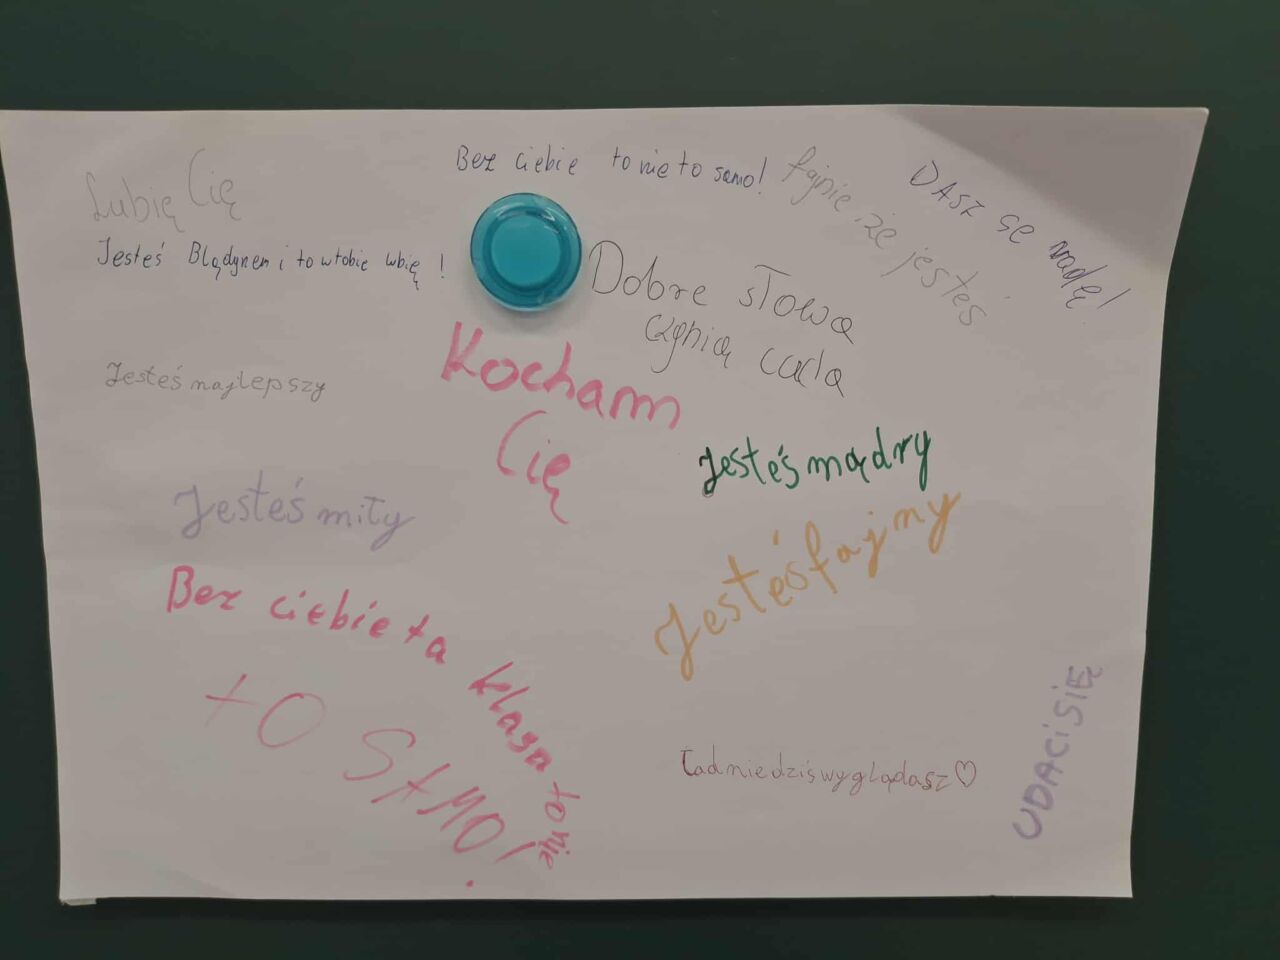 Lubię Cię
Bez ciebie to nie to samo!
fajnie że jesteś
DASZ SE radę!
Jesteś Blądynem i to w tobie lubię !
Dobre słowa
czynią cuda
Kocham
Cię
Jesteś najlepszy
Jesteś mądry
Jesteś miły
Jesteś fajny
Bez ciebie ta klasa to nie
to SAMO!
Ładnie dziś wyglądasz♡
UDACi SIĘ